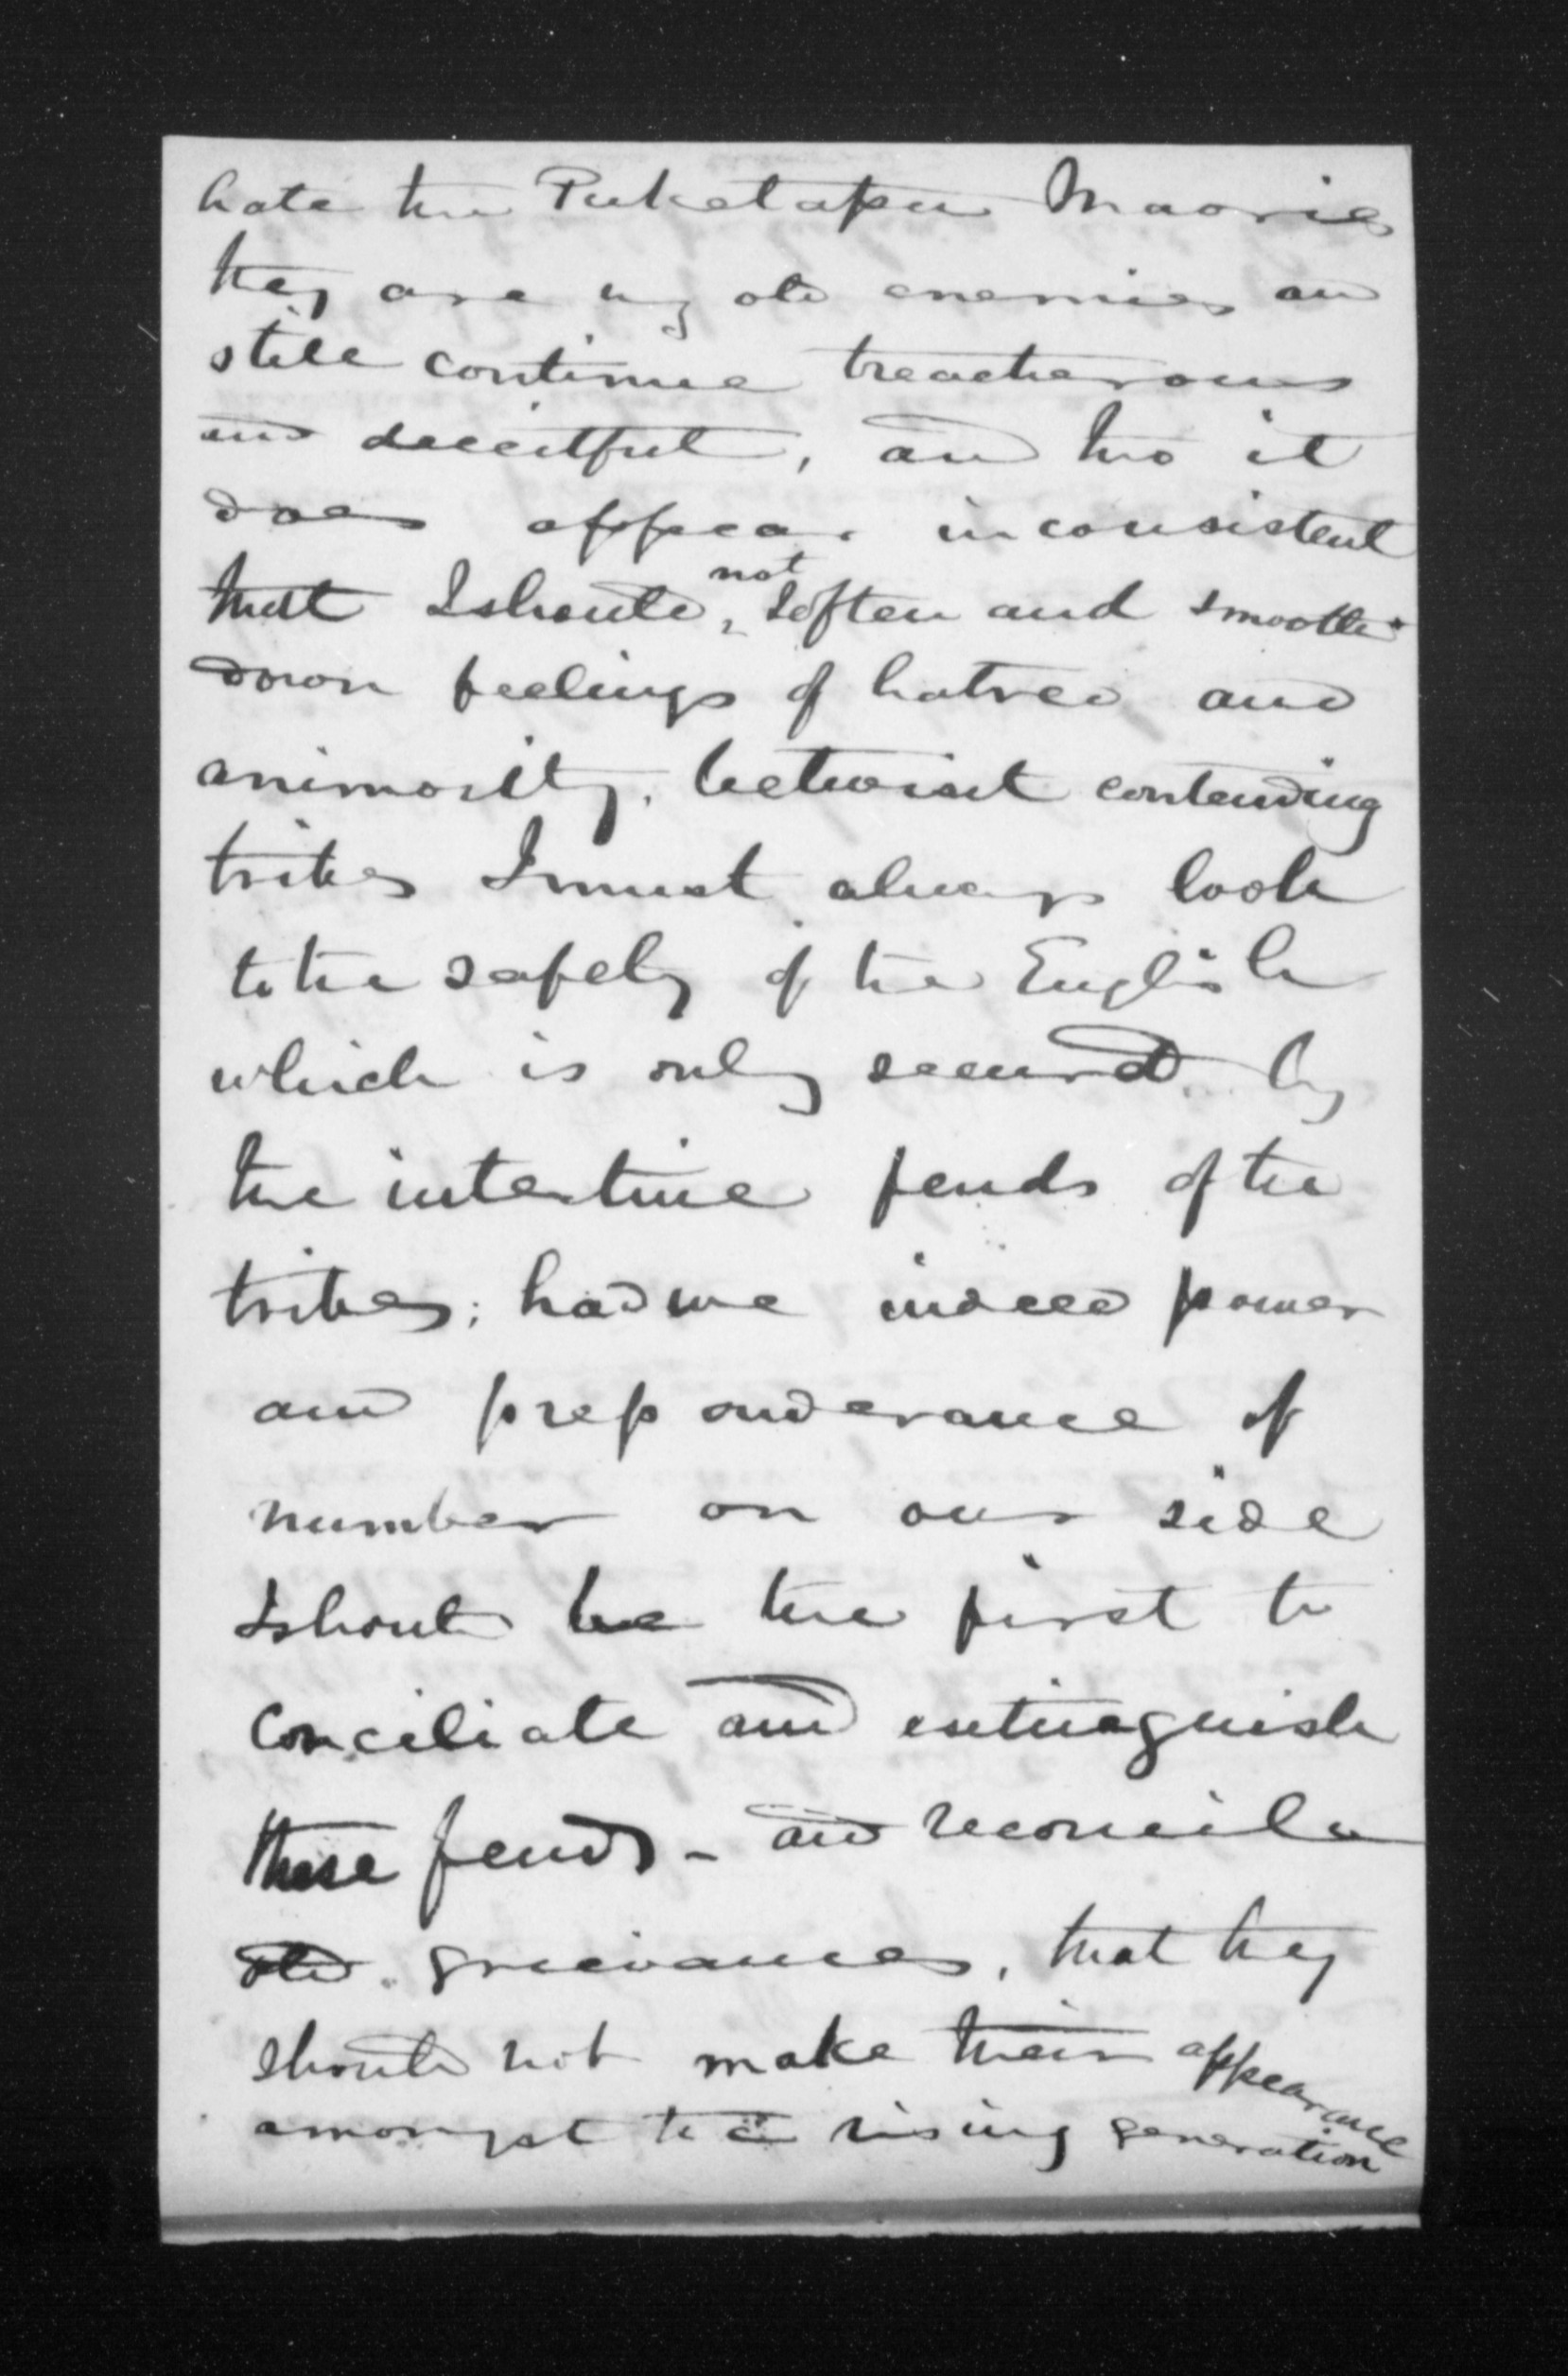 hate the Puketapu Maories
they are my old enemies and
still continue treacherous
and deceitful, and tho it
does appear inconsistent
that I should not soften and smooth
down feelings of hatred and
animosity, betwixt contending
tribes I must always look
to the safety of the English
which is only secured by
the intestine feuds of the
tribes; had we indeed power
and preponderance of
number on our side
I should be the first to
conciliate and extinguish
these feuds - and reconcile
old grievances, that they
should not make their appearance
amongst the rising generation